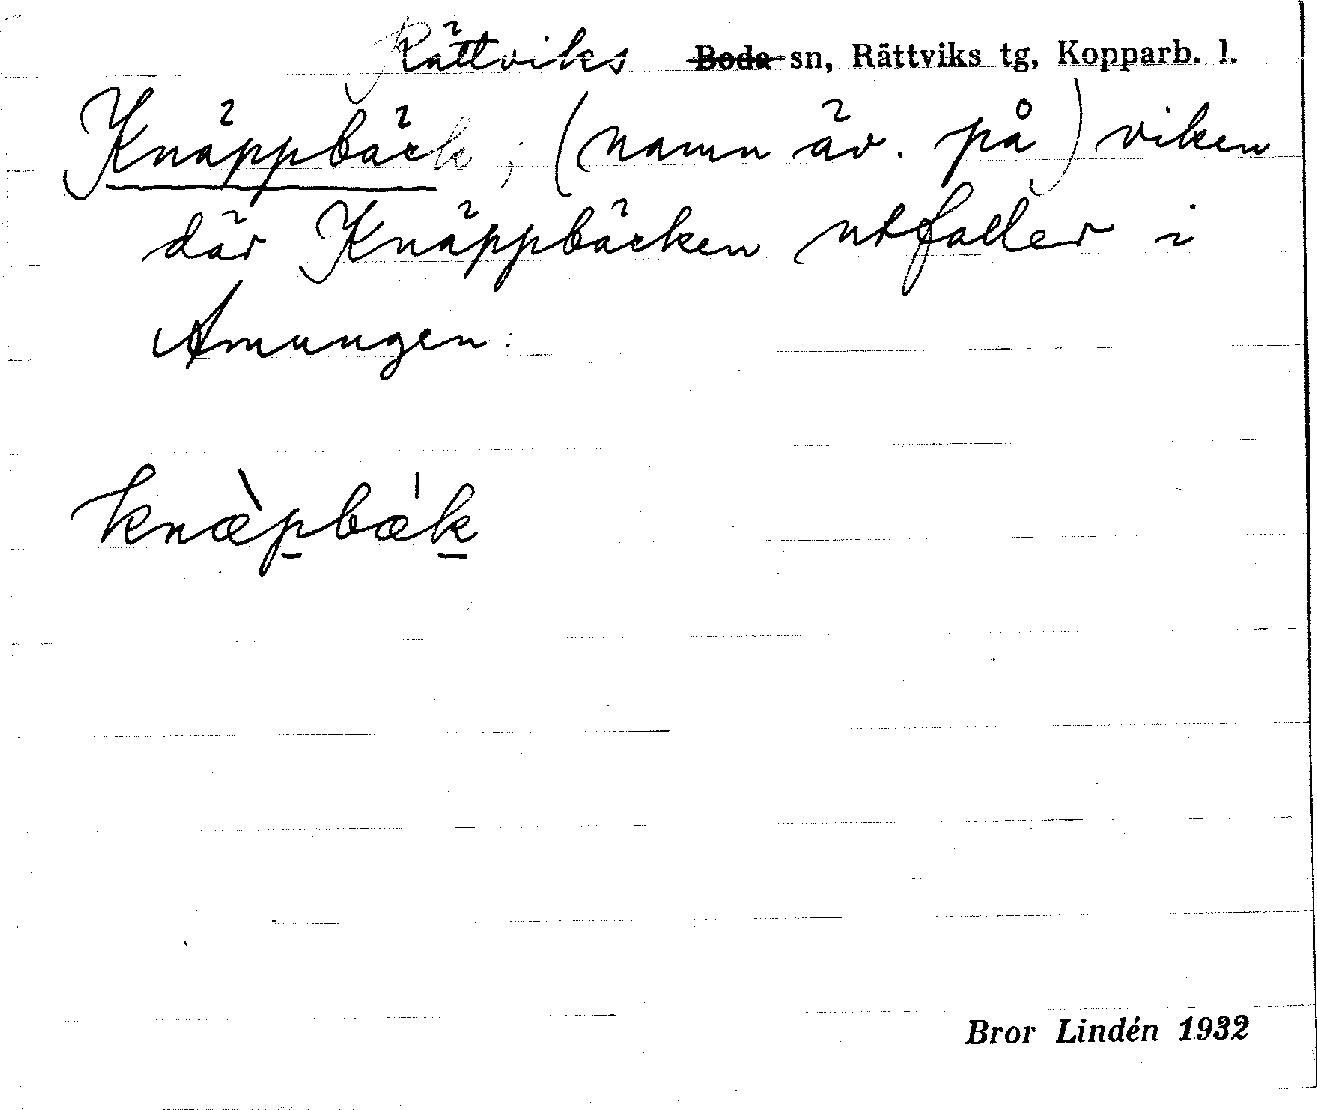 Rättviks Boda sn, Rättviks tg, Kopparb. l.
Knäppbäck, (namn äv. på) viken
där Knäppbäcken utfaller i
Amungen.
knæ̀pbæ̍k
Bror Lindén 1932